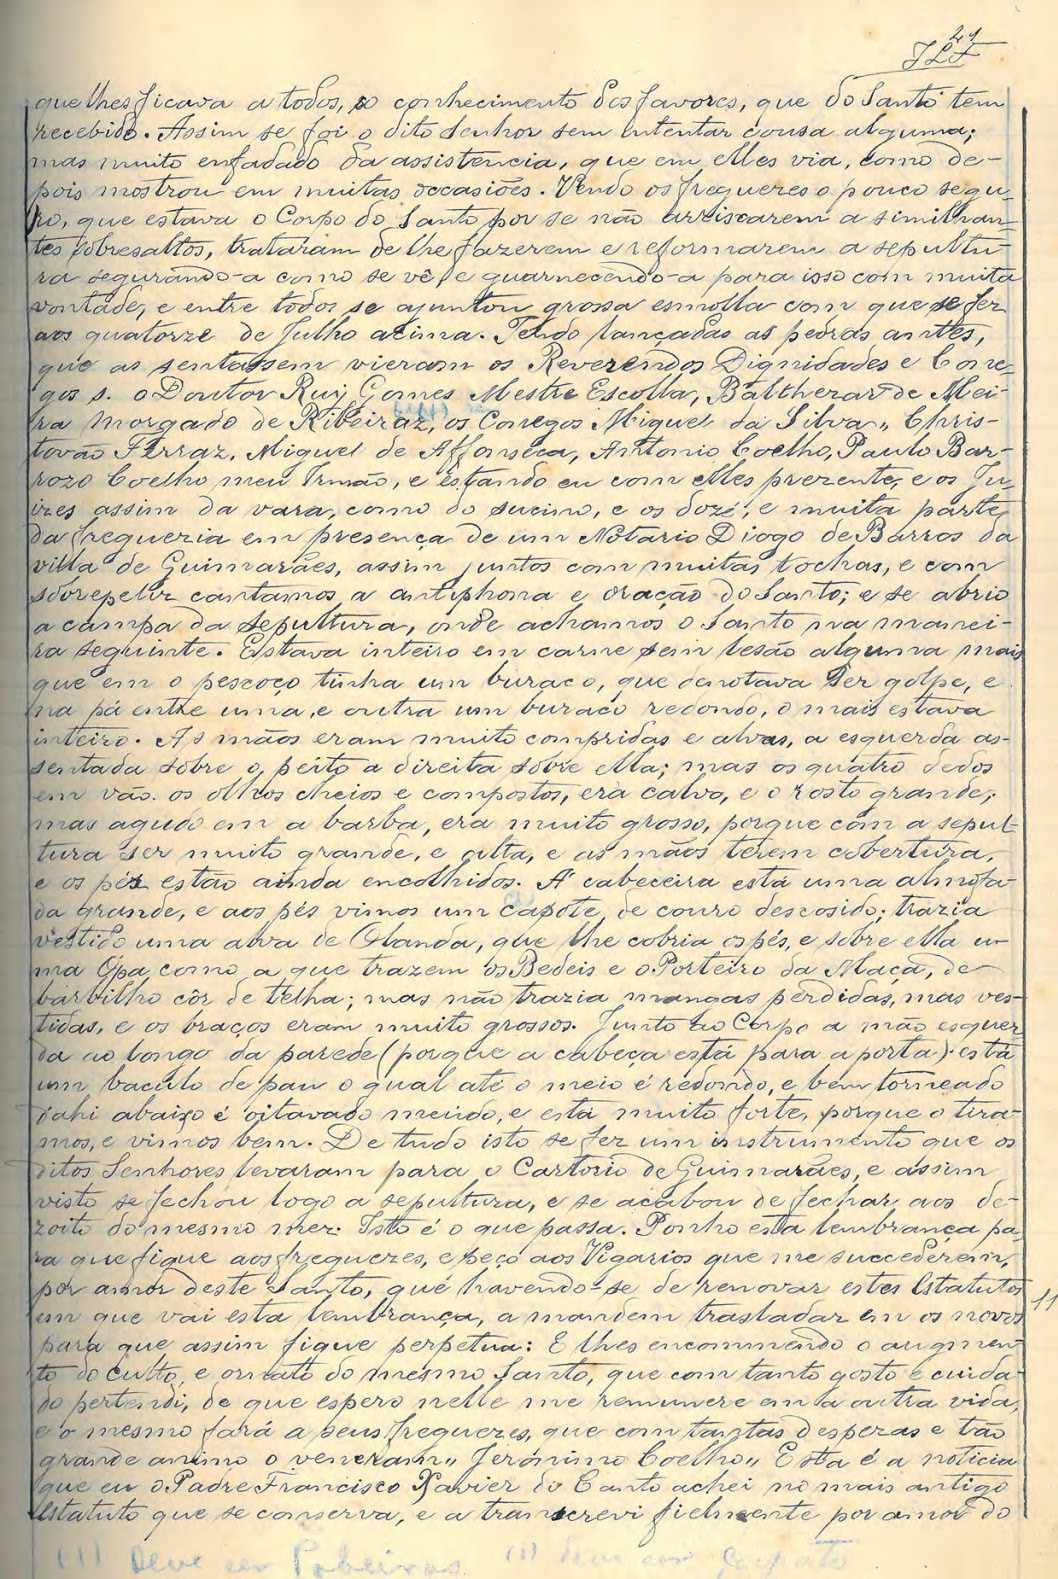 21
JLF
que lhes ficava a todos, so conhecimento dos favores, que do Santo tem
recebido. Assim se foi o dito Senhor sem intentar cousa alguma;
mas muito enfadado da assistencia, que em elles via, como de-
pois mostrou em muitas occasiões. Vendo os freguezes o pouco segu-
ro, que estava o Corpo do Santo por se não arriscarem a similhan-
tes sobresaltos, trataram de lhe fazerem e reformarem a sepultu-
ra segurando-a como se vê, e guarnecendo-a para isso com muita
vontade, e entre todos se ajuntou grossa esmolla com que se fez
aos quatorze de Julho acima. Tendo lançadas as pedras antes,
que as sentassem vieram os Reverendos Dignidades e Cone-
gos s. o Doutor Ruy Gomes Mestre Escolla, Balthezar de Mei-
ra Morgado de Ribeiraz, os Conegos Miguel da Silva,, Chris-
tovão Ferraz, Miguel de Affonseca, Antonio Coelho, Paulo Bar-
rozo Coelho meu Irmão, e estando eu com elles prezente, e os Ju-
izes assim da vara, como do sucino, e os doze, e muita parte
da freguezia em presença de um Notario Diogo de Barros da
villa de Guimarães, assim juntos com muitas tochas, e com
sobrepeliz cantamos a antiphona e oração do Santo; e se abrio
a campa da sepultura, onde achamos o Santo na manei-
ra seguinte. Estava inteiro em carne sem lesão alguma mais
que em o pescoço tinha um buraco, que denotava ser golpe, e
na pá entre uma, e outra um buraco redondo, o mais estava
inteiro. As mãos eram muito compridas e alvas, a esquerda as-
sentada sobre o peito a direita sobre ella; mas os quatro dedos
em vão. os olhos cheios e compostos, era calvo, e o rosto grande,
mas agudo em a barba, era muito grosso, porque com a sepul-
tura ser muito grande, e alta, e as mãos terem cobertura,
e os pés estão ainda encolhidos. Á cabeceira está uma almofa-
da grande, e aos pés vimos um capote de couro descosido; trazia
vestido uma alva de Olanda, que lhe cobria os pés, e sobre ella u-
ma Ópa como a que trazem os Bedeis e o Porteiro da Maça, de
barbilho côr de telha; mas não trazia mangas perdidas, mas ves-
tidas, e os braços eram muito grossos. Junto ao Corpo a mão esquer-
da ao longo da parede (porque a cabeça está para a porta) está
um baculo de pau o qual até o meio é redondo, e bem torneado
dahi abaixo é oitavado meudo, e está muito forte, porque o tira-
mos, e vimos bem. De tudo isto se fez um instrumento que os
ditos Senhores levaram para o Cartorio de Guimarães, e assim
visto se fechou logo a sepultura, e se acabou de fechar aos de-
zoito do mesmo mez. Isto é o que passa. Ponho esta lembrança pa-
ra que fique aos freguezes, e peço aos Vigarios que me succederem,
por amor deste Santo, que havendo-se de renovar estes Estatutos
em que vai esta lembrança, a mandem trasladar em os novos
para que assim fique perpetua: E lhes encommendo o augmen-
to do culto, e ornato do mesmo Santo, que com tanto gosto e cuida-
do pertendi, de que espero nelle me remunere em a outra vida,
e o mesmo fará a seus freguezes, que com tantas despezas e tão
grande animo o veneram,, Jerónimo Coelho,, Esta é a noticia
que eu o Padre Francisco Xavier do Canto achei no mais antigo
Estatuto que se conserva, e a transcrevi fielmente por amor do
11
(1) Deve ser Pobeiras (1) Deve ser